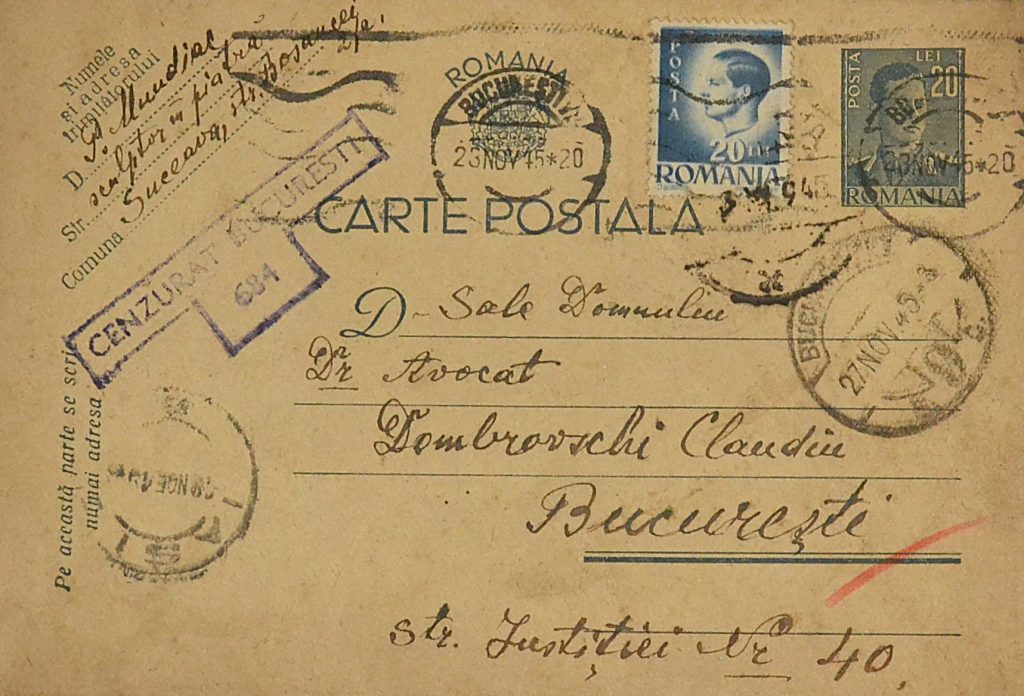 Numele
și adresa
trimițătorului
D. Gh. Mundiac
sculptor în piatră
Str.
Suceava, str. Bosancei
2/a.
Comuna
CENZURAT BUCUREȘTI
684
Pe această parte se scrie
numai adresa
ROMANIA
BUCUREȘTI
23 NOV 45*20
CARTE POSTALA
POSTA
20 LEI
ROMANIA
POSTA
LEI
20
ROMANIA
23 NOV 45*20
27 NOV 45
D-Sale Domnului
Dr Avocat
Dombrovschi Claudiu
București
str. Justiției Nr 40.